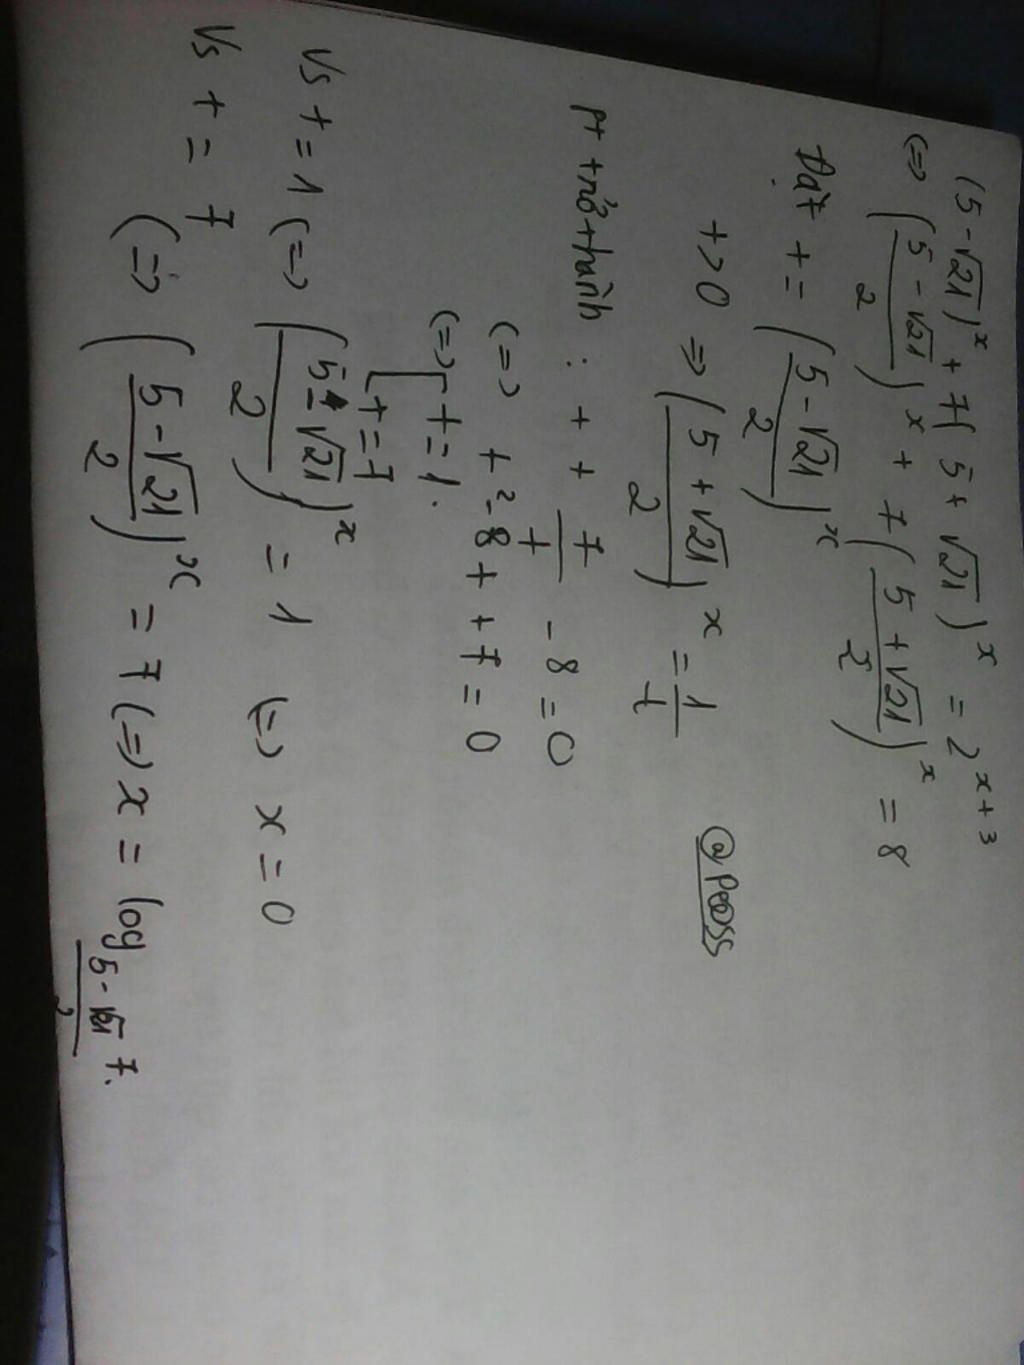 (5-√21)^x + 7(5+√21)^x = 2^{x+3}
(=> ((5-√21)/2)^x + 7((5+√21)/2)^x = 8
Đặt t = ((5-√21)/2)^x
t>0 => ((5+√21)/2)^x = 1/t
@Peoss
pt trở thành : t + 7/t - 8 = 0
(=> t² - 8t + 7 = 0
(=> [ t = 1.
t = 7
Vs t = 1 (=> ((5-√21)/2)^x = 1 (=) x = 0
Vs t = 7
(=> ((5-√21)/2)^x = 7 (=> x = log_{(5-√21)/2} 7.